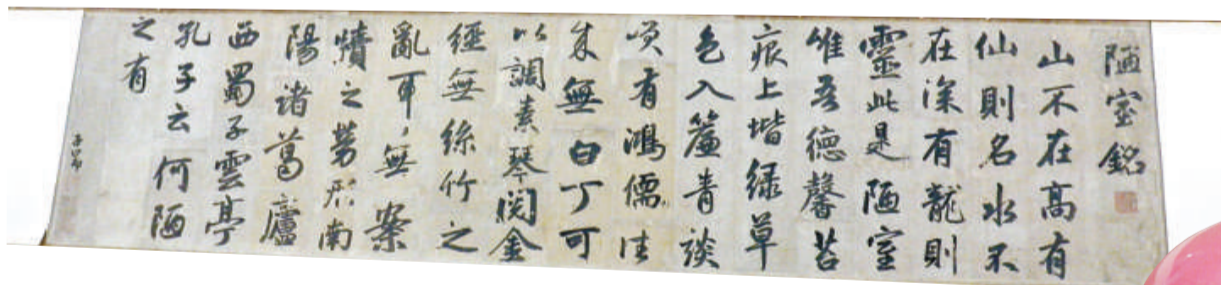 陋室銘
山不在高有
仙則名水不
在深有龍則
靈此是陋室
惟吾德馨苔
痕上堦緑草
色入簾青談
笑有鴻儒往
来無白丁可
以調素琴閲金
經無絲竹之
亂耳無案
牘之勞形南
陽諸葛廬
西蜀子雲亭
孔子云何陋
之有